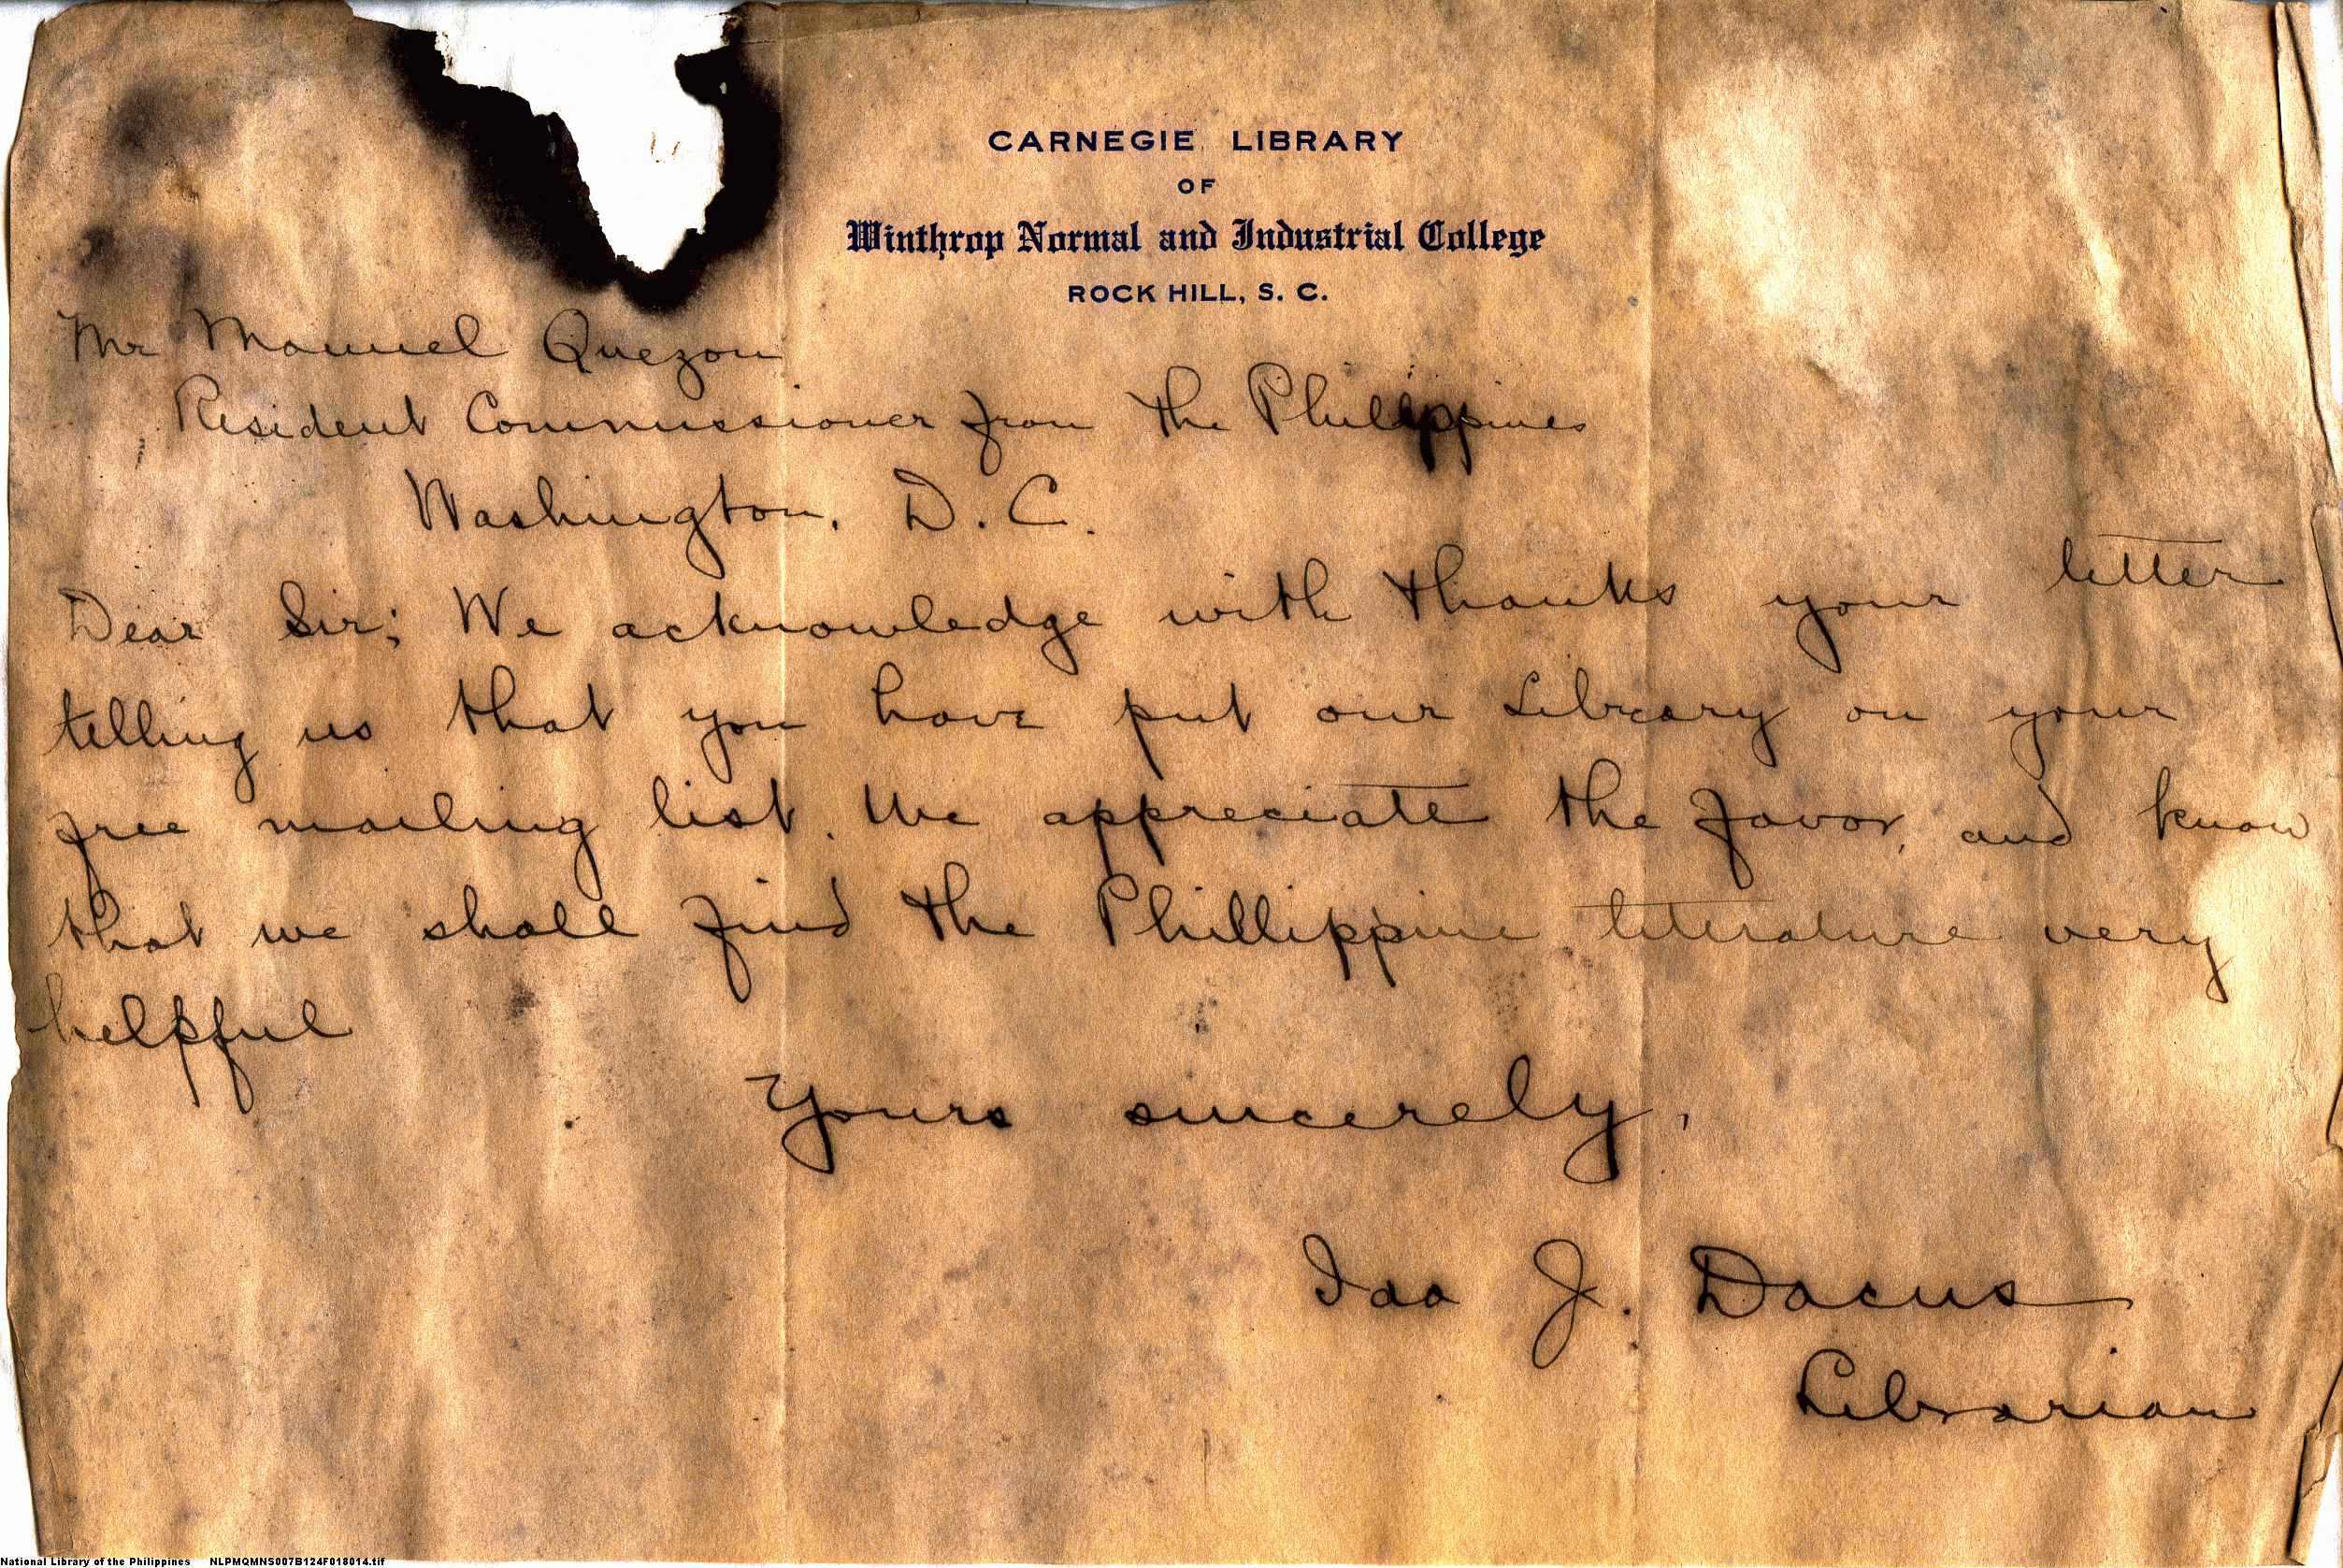 CARNEGIE LIBRARY
OF
Winthrop Normal and Industrial College
ROCK HILL, S. C.
Mr Manuel Quezon
Resident Commissioner from the Philippines
Washington, D. C.
Dear Sir; We acknowledge with thanks your letter
telling us that you have put our Library on your
free mailing list. We appreciate the favor, and know
that we shall find the Phillippine literature very
helpful
Yours sincerely,
Ida J. Dacus
Librarian
National Library of the Philippines NLPMQMNS007B124F018014.tif